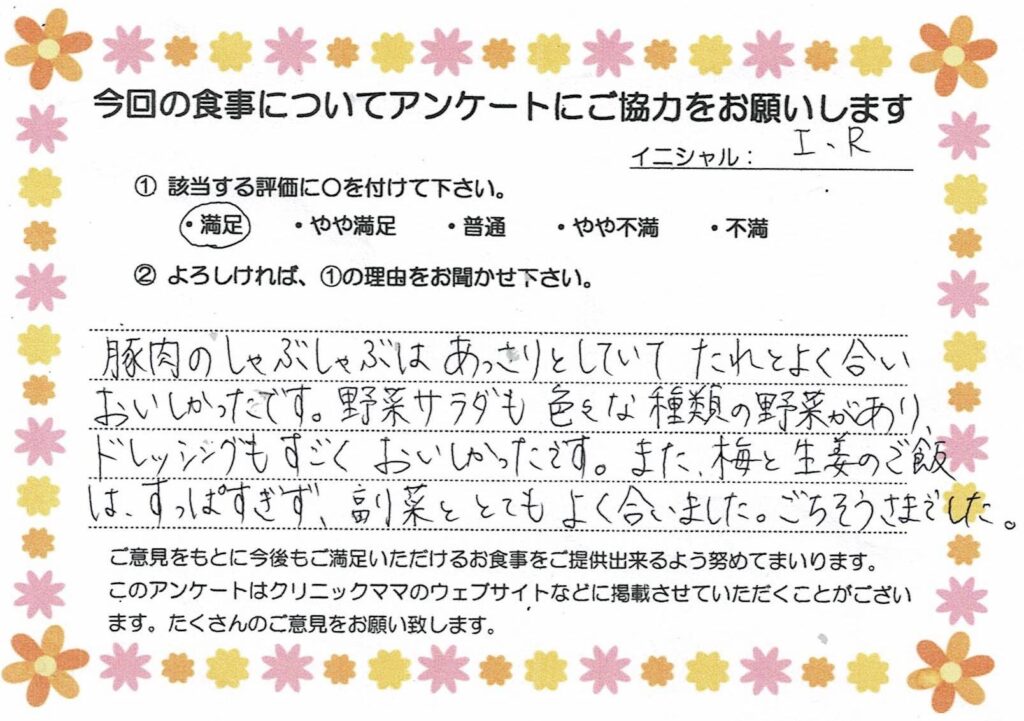 今回の食事についてアンケートにご協力をお願いします
イニシャル： I、R
① 該当する評価に○を付けて下さい。
・満足 ・やや満足 ・普通 ・やや不満 ・不満
② よろしければ、①の理由をお聞かせ下さい。
豚肉のしゃぶしゃぶは あっさりとしていて たれとよく合い
おいしかったです。野菜サラダも 色々な種類の野菜があり、
ドレッシングもすごく おいしかったです。また、梅と生姜のご飯
は、すっぱすぎず、副菜ととても よく合いました。ごちそうさまでした。
ご意見をもとに今後もご満足いただけるお食事をご提供出来るよう努めてまいります。
このアンケートはクリニックママのウェブサイトなどに掲載させていただくことがござい
ます。たくさんのご意見をお願い致します。